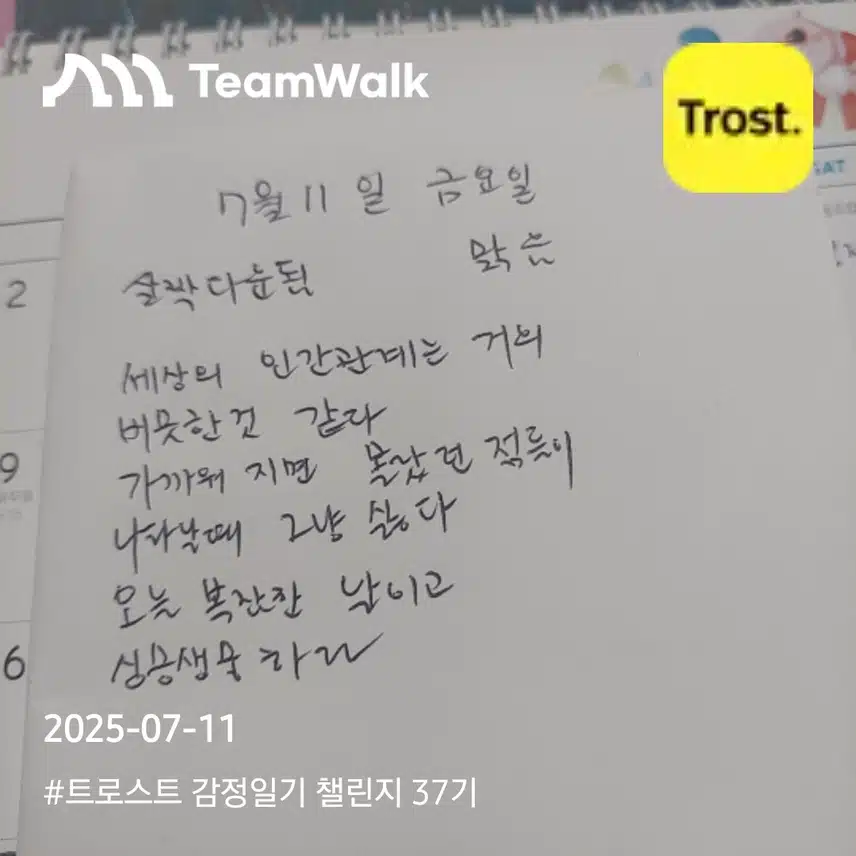 TeamWalk
Trost.
SAT
7월 11일 금요일
맑음
살짝다운됨
세상의 인간관계는 거의
비슷한것 같다
가까워 지면 몰랐던 적들이
나타날때 그냥 싫다
오늘 복잡한 날이고
싱숭생숭 하다
2
9
6
2025-07-11
#트로스트 감정일기 챌린지 37기